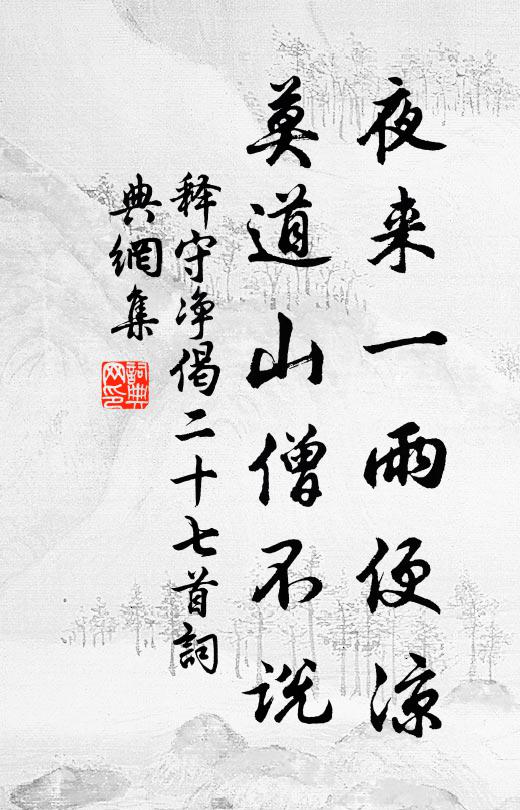 夜来一雨便凉
莫道山僧不说
释守净偈二十七首詞
典網集
詞典
网印